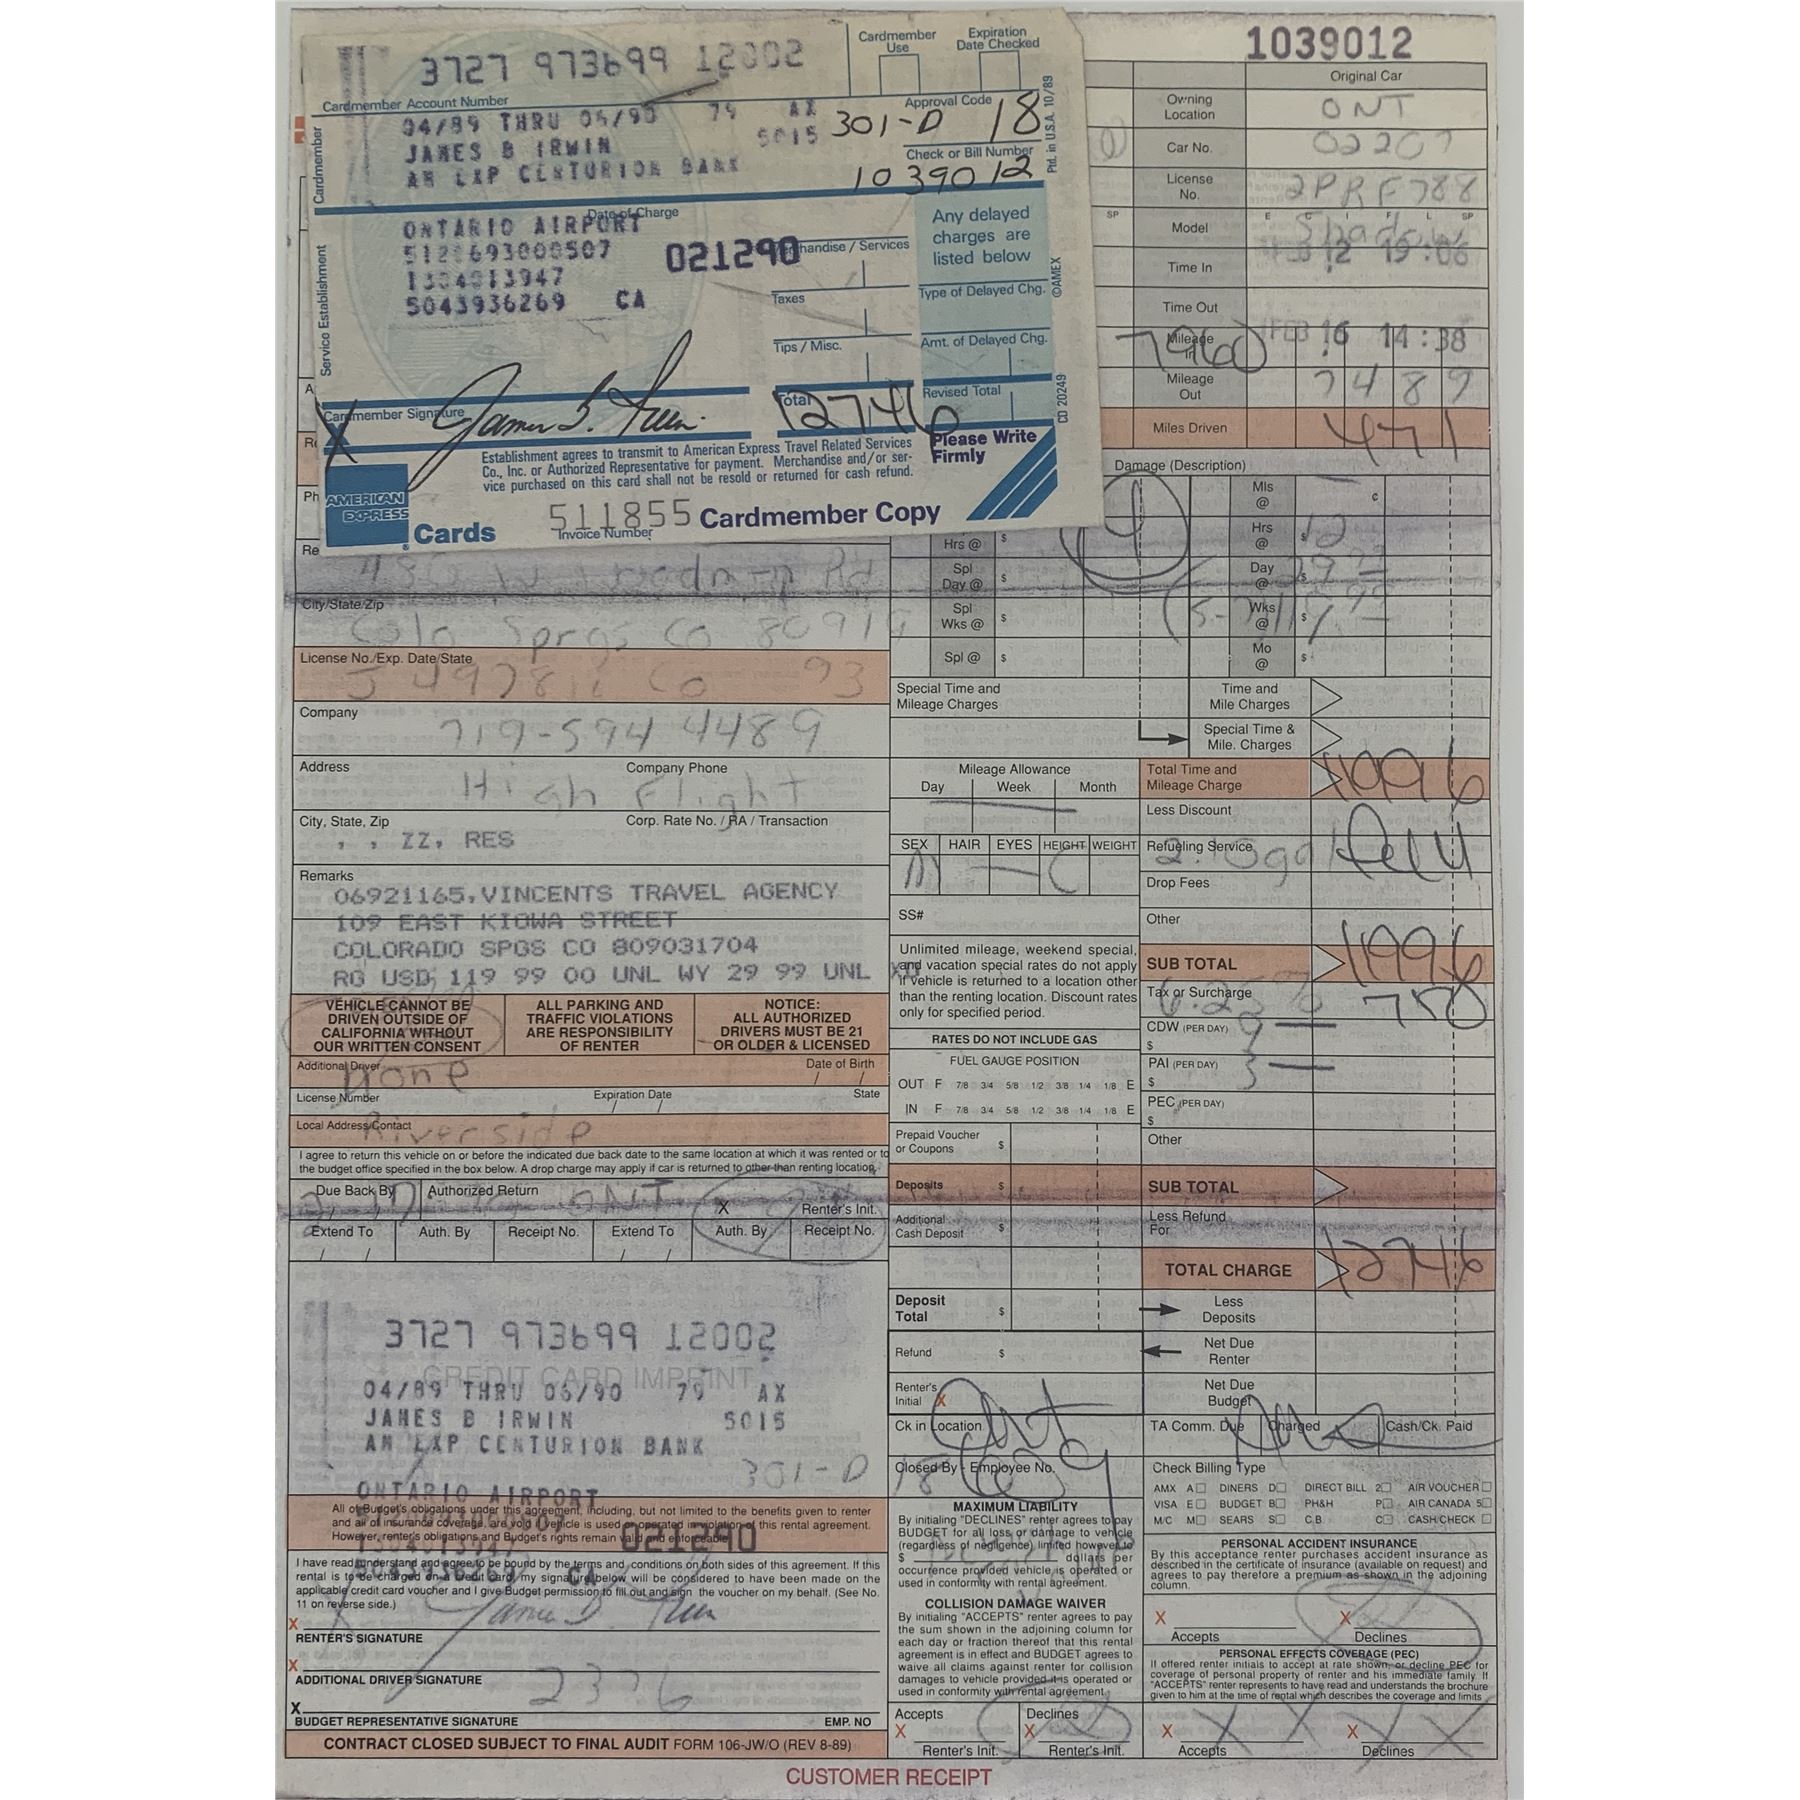 1039012
3727 973699 12002
Cardmember Use
Expiration Date Checked
Cardmember Account Number
Approval Code
04/89 THRU 06/90 79 AX
301-D 18
JAMES B IRWIN 5015
Check or Bill Number
AM EXP CENTURION BANK
1039012
Cardmember
Ptd. in U.S.A. 10/89
Date of Charge
ONTARIO AIRPORT
021290
Merchandise / Services
5043936269 CA
Service Establishment
Taxes
Tips / Misc.
Total
12746
Any delayed charges are listed below
Type of Delayed Chg.
Amt. of Delayed Chg.
Revised Total
©AMEX
CD 20249
Cardmember Signature
X James B. Irwin
Establishment agrees to transmit to American Express Travel Related Services
Co., Inc. or Authorized Representative for payment. Merchandise and/or ser-
vice purchased on this card shall not be resold or returned for cash refund.
Please Write Firmly
AMERICAN EXPRESS
® Cards
511855
Invoice Number
Cardmember Copy
Original Car
Owning Location ONT
Car No. 02207
License No. 2PRF788
Model
Time In 12 19:06
Time Out
Mileage In 7960
FEB 16 14:38
Mileage Out 7489
Miles Driven 471
Damage (Description)
Mls @ ¢
Hrs @ $ Hrs @ $ 12
Spl Day @ $ Day @ $ 29
Spl Wks @ $ Wks @ $
Spl @ $ Mo @ $
City/State/Zip
Colo Sprgs Co
License No./Exp. Date/State
Co 93
Company
719-594 4489
Address Company Phone
High Flight
City, State, Zip Corp. Rate No. / RA / Transaction
, , ZZ, RES
Remarks
06921165,VINCENTS TRAVEL AGENCY
109 EAST KIOWA STREET
COLORADO SPGS CO 809031704
RG USD 119 99 00 UNL WY 29 99 UNL XD
VEHICLE CANNOT BE DRIVEN OUTSIDE OF CALIFORNIA WITHOUT OUR WRITTEN CONSENT
ALL PARKING AND TRAFFIC VIOLATIONS ARE RESPONSIBILITY OF RENTER
NOTICE: ALL AUTHORIZED DRIVERS MUST BE 21 OR OLDER & LICENSED
Additional Driver Date of Birth
None / /
License Number Expiration Date State
Local Address/Contact
Riverside
I agree to return this vehicle on or before the indicated due back date to the same location at which it was rented or to
the budget office specified in the box below. A drop charge may apply if car is returned to other than renting location.
Due Back By Authorized Return
ONT X Renter's Init.
Extend To Auth. By Receipt No. Extend To Auth. By Receipt No.
Special Time and Mileage Charges
Time and Mile Charges
Special Time & Mile. Charges
Mileage Allowance
Day Week Month
Total Time and Mileage Charge 11996
Less Discount
SEX HAIR EYES HEIGHT WEIGHT
M
Refueling Service
Drop Fees
SS#
Other
Unlimited mileage, weekend special,
and vacation special rates do not apply
if vehicle is returned to a location other
than the renting location. Discount rates
only for specified period.
SUB TOTAL 11996
Tax or Surcharge 6.25% 750
CDW (PER DAY) $ 9
RATES DO NOT INCLUDE GAS
FUEL GAUGE POSITION
OUT F 7/8 3/4 5/8 1/2 3/8 1/4 1/8 E
IN F 7/8 3/4 5/8 1/2 3/8 1/4 1/8 E
PAI (PER DAY) $ 3
PEC (PER DAY) $
Prepaid Voucher or Coupons $
Other
Deposits $
SUB TOTAL
Additional Cash Deposit $
Less Refund For
TOTAL CHARGE 12746
Deposit Total $
Less Deposits
Refund $
Net Due Renter
Renter's Initial X
Net Due Budget
Ck in Location
TA Comm. Due Charged Cash/Ck. Paid
Closed By - Employee No.
3727 973699 12002
CREDIT CARD IMPRINT
04/89 THRU 06/90 79 AX
JAMES B IRWIN 5015
AM EXP CENTURION BANK
301-D
ONTARIO AIRPORT
021290
All of Budget's obligations under this agreement, including, but not limited to the benefits given to renter
and all of insurance coverage, are void if vehicle is used or operated in violation of this rental agreement.
However, renter's obligations and Budget's rights remain valid and enforceable.
I have read, understand and agree to be bound by the terms and conditions on both sides of this agreement. If this
rental is to be charged on a credit card, my signature below will be considered to have been made on the
applicable credit card voucher and I give Budget permission to fill out and sign the voucher on my behalf. (See No.
11 on reverse side.)
X James B Irwin
RENTER'S SIGNATURE
X
ADDITIONAL DRIVER SIGNATURE
2376
X
BUDGET REPRESENTATIVE SIGNATURE EMP. NO
CONTRACT CLOSED SUBJECT TO FINAL AUDIT FORM 106-JW/O (REV 8-89)
MAXIMUM LIABILITY
By initialing "DECLINES" renter agrees to pay
BUDGET for all loss or damage to vehicle
(regardless of negligence) limited however to
$ dollars per
occurrence provided vehicle is operated or
used in conformity with rental agreement.
COLLISION DAMAGE WAIVER
By initialing "ACCEPTS" renter agrees to pay
the sum shown in the adjoining column for
each day or fraction thereof that this rental
agreement is in effect and BUDGET agrees to
waive all claims against renter for collision
damages to vehicle provided it is operated or
used in conformity with rental agreement.
Accepts Declines
X X
Renter's Init. Renter's Init.
Check Billing Type
AMX A DINERS D DIRECT BILL 2 AIR VOUCHER
VISA E BUDGET B PH&H P AIR CANADA 5
M/C M SEARS S C.B. C CASH/CHECK
PERSONAL ACCIDENT INSURANCE
By this acceptance renter purchases accident insurance as
described in the certificate of insurance (available on request) and
agrees to pay therefore a premium as shown in the adjoining
column.
X X
Accepts Declines
PERSONAL EFFECTS COVERAGE (PEC)
If offered renter initials to accept at rate shown, or decline PEC for
coverage of personal property of renter and his immediate family. If
"ACCEPTS" renter represents to have read and understands the brochure
given to him at the time of rental which describes the coverage and limits
X X X X X X
Accepts Declines
CUSTOMER RECEIPT